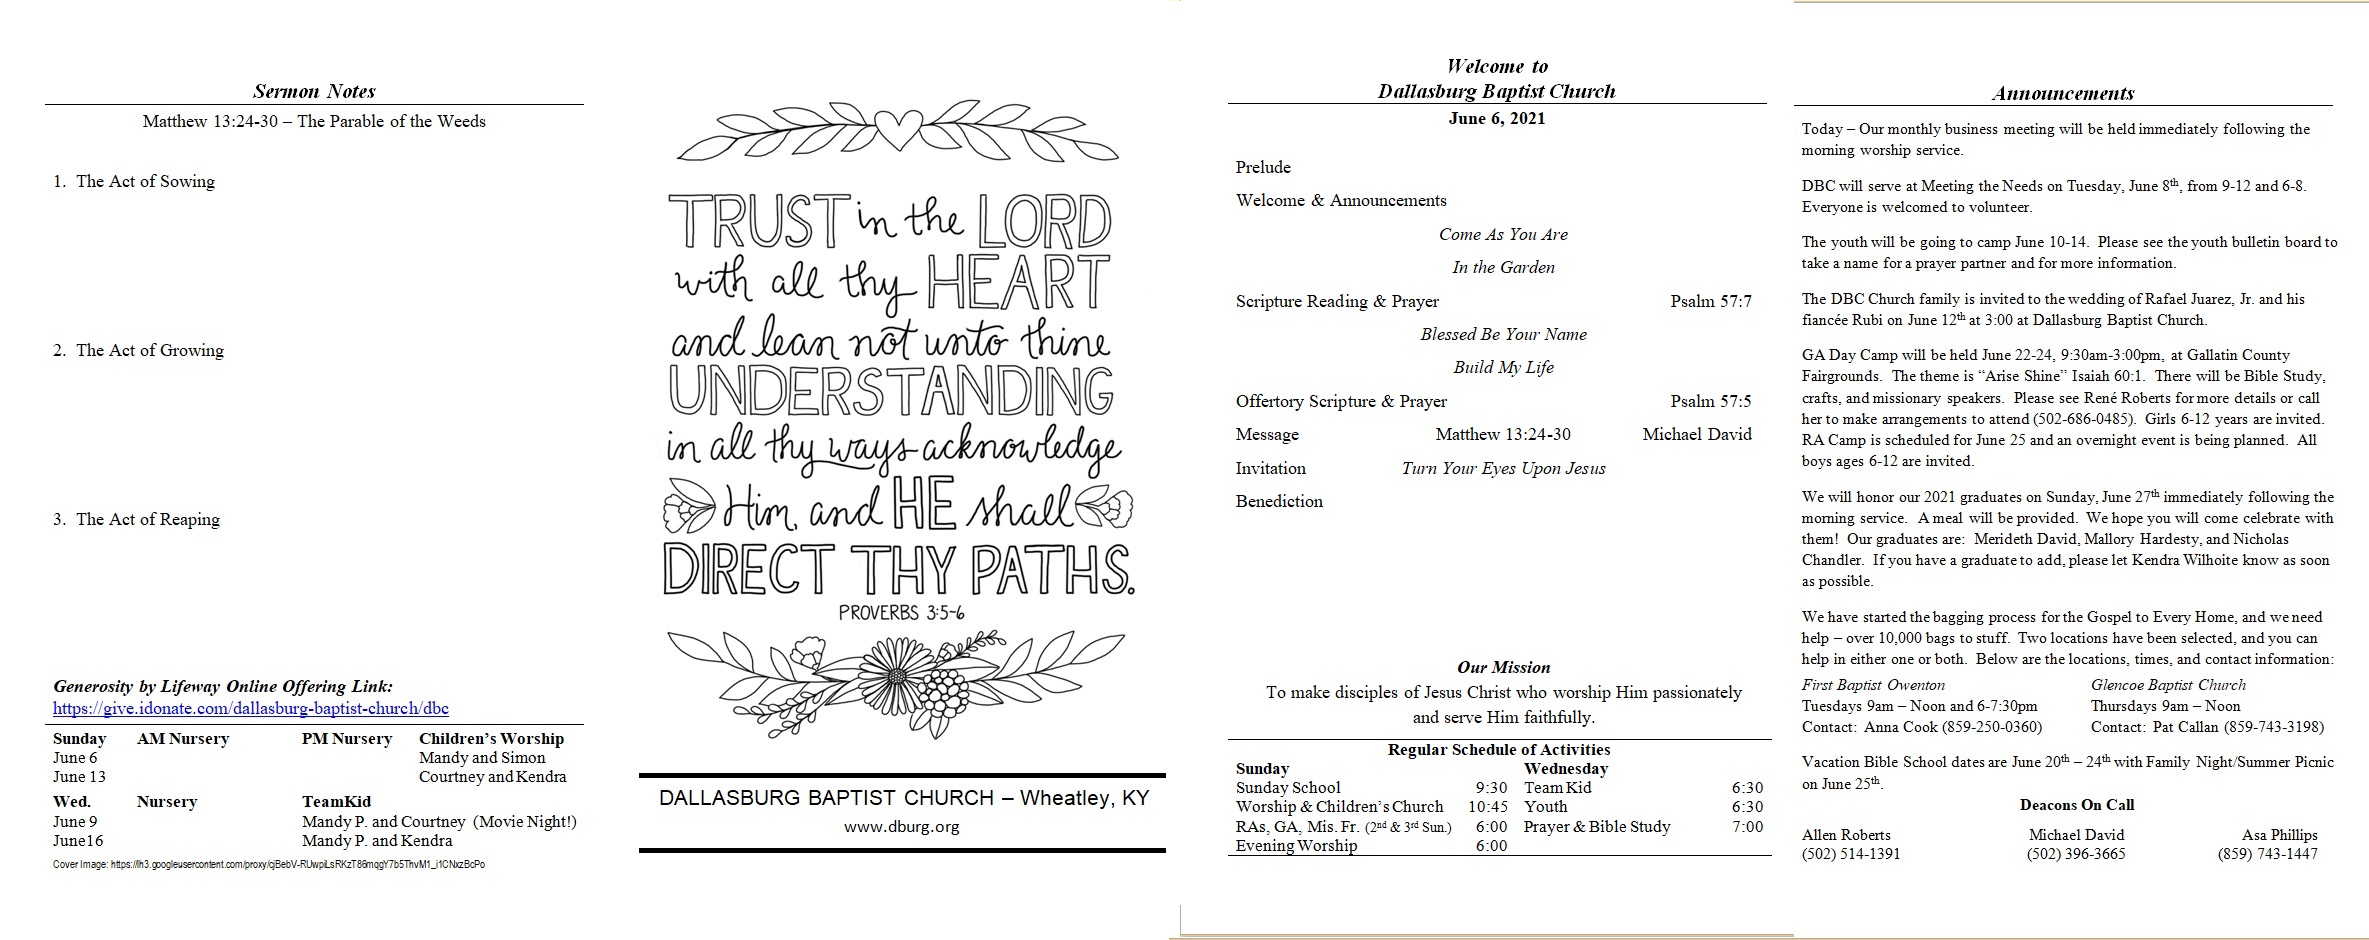 Sermon Notes
Matthew 13:24-30 – The Parable of the Weeds
1. The Act of Sowing
2. The Act of Growing
3. The Act of Reaping
Generosity by Lifeway Online Offering Link:
https://give.idonate.com/dallasburg-baptist-church/dbc
Sunday AM Nursery PM Nursery Children's Worship
June 6 Mandy and Simon
June 13 Courtney and Kendra
Wed. Nursery TeamKid
June 9 Mandy P. and Courtney (Movie Night!)
June16 Mandy P. and Kendra
Cover Image: 
TRUST in the LORD
with all thy HEART
and lean not unto thine
UNDERSTANDING
in all thy ways acknowledge
Him, and HE shall
DIRECT THY PATHS.
PROVERBS 3:5-6
DALLASBURG BAPTIST CHURCH – Wheatley, KY
www.dburg.org
Welcome to
Dallasburg Baptist Church
June 6, 2021
Prelude
Welcome & Announcements
Come As You Are
In the Garden
Scripture Reading & Prayer Psalm 57:7
Blessed Be Your Name
Build My Life
Offertory Scripture & Prayer Psalm 57:5
Message Matthew 13:24-30 Michael David
Invitation Turn Your Eyes Upon Jesus
Benediction
Our Mission
To make disciples of Jesus Christ who worship Him passionately
and serve Him faithfully.
Regular Schedule of Activities
Sunday Wednesday
Sunday School 9:30 Team Kid 6:30
Worship & Children's Church 10:45 Youth 6:30
RAs, GA, Mis. Fr. (2nd & 3rd Sun.) 6:00 Prayer & Bible Study 7:00
Evening Worship 6:00
Announcements
Today – Our monthly business meeting will be held immediately following the
morning worship service.
DBC will serve at Meeting the Needs on Tuesday, June 8th, from 9-12 and 6-8.
Everyone is welcomed to volunteer.
The youth will be going to camp June 10-14. Please see the youth bulletin board to
take a name for a prayer partner and for more information.
The DBC Church family is invited to the wedding of Rafael Juarez, Jr. and his
fiancée Rubi on June 12th at 3:00 at Dallasburg Baptist Church.
GA Day Camp will be held June 22-24, 9:30am-3:00pm, at Gallatin County
Fairgrounds. The theme is “Arise Shine” Isaiah 60:1. There will be Bible Study,
crafts, and missionary speakers. Please see René Roberts for more details or call
her to make arrangements to attend (502-686-0485). Girls 6-12 years are invited.
RA Camp is scheduled for June 25 and an overnight event is being planned. All
boys ages 6-12 are invited.
We will honor our 2021 graduates on Sunday, June 27th immediately following the
morning service. A meal will be provided. We hope you will come celebrate with
them! Our graduates are: Merideth David, Mallory Hardesty, and Nicholas
Chandler. If you have a graduate to add, please let Kendra Wilhoite know as soon
as possible.
We have started the bagging process for the Gospel to Every Home, and we need
help – over 10,000 bags to stuff. Two locations have been selected, and you can
help in either one or both. Below are the locations, times, and contact information:
First Baptist Owenton Glencoe Baptist Church
Tuesdays 9am – Noon and 6-7:30pm Thursdays 9am – Noon
Contact: Anna Cook (859-250-0360) Contact: Pat Callan (859-743-3198)
Vacation Bible School dates are June 20th – 24th with Family Night/Summer Picnic
on June 25th.
Deacons On Call
Allen Roberts Michael David Asa Phillips
(502) 514-1391 (502) 396-3665 (859) 743-1447